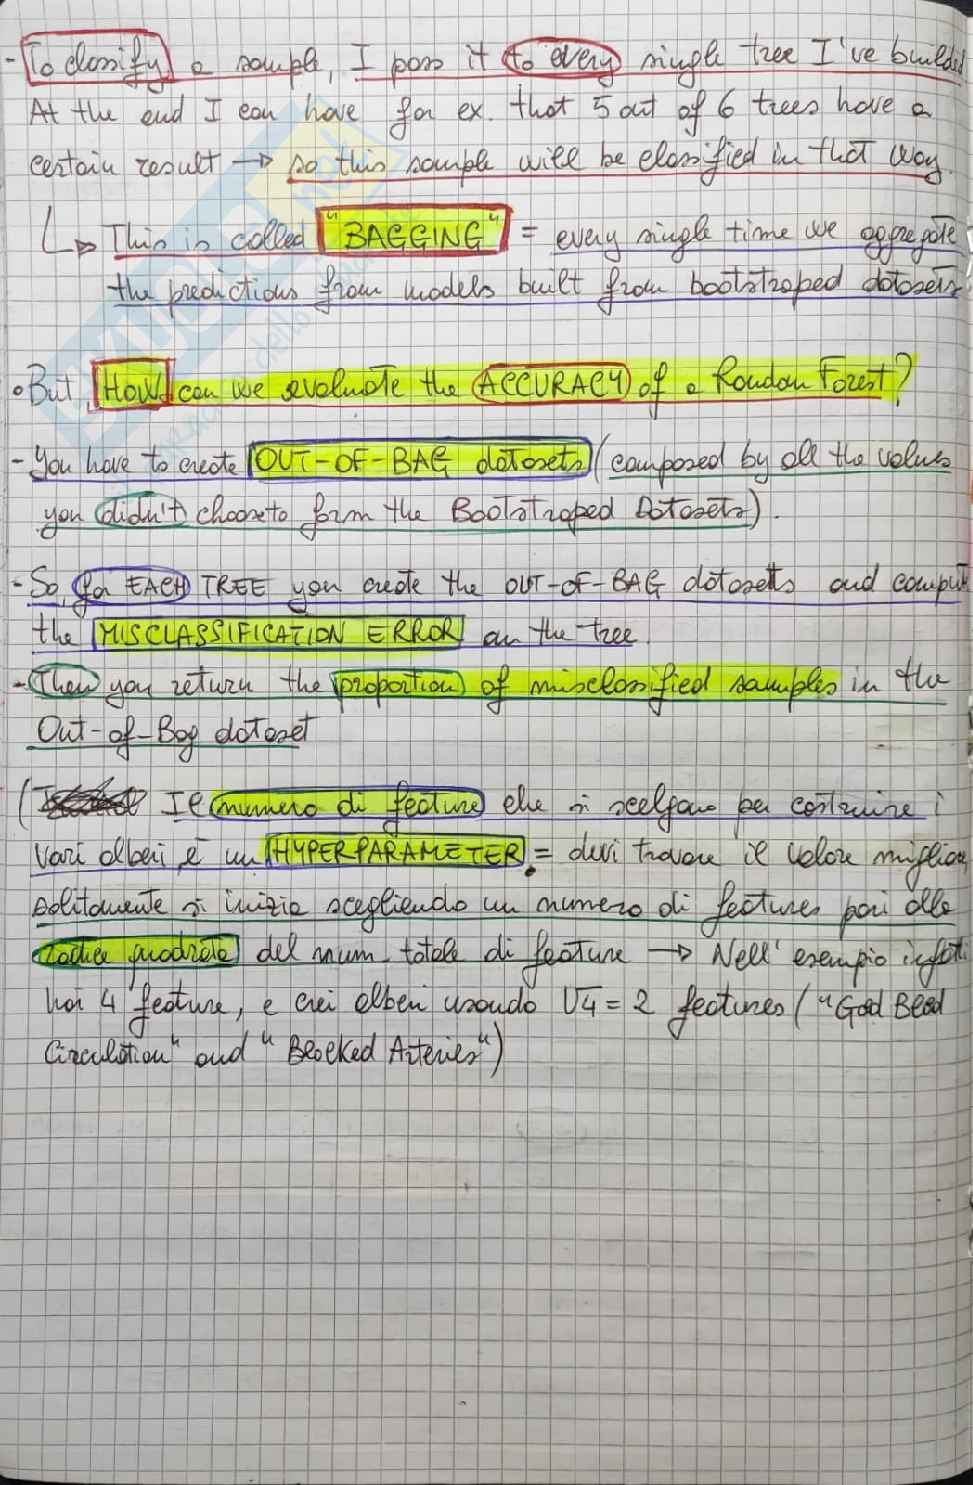 - To classify a sample, I pass it to every single tree I've builded
At the end I can have for ex. that 5 out of 6 trees have a
certain result → so this sample will be classified in that way.
↳ This is called "BAGGING" = every single time we aggregate
the predictions from models built from bootstraped datasets
• But, HOW can we evaluate the ACCURACY of a Random Forest?
- You have to create OUT-OF-BAG datasets (composed by all the values
you didn't choose to form the Bootstraped Datasets).
- So, for EACH TREE you create the OUT-OF-BAG datasets and comput
the MISCLASSIFICATION ERROR on the tree.
- Then you return the proportion of misclassified samples in the
Out-of-Bag dataset
( Il numero di feature che si scelgono per costruire i
vari alberi è un HYPERPARAMETER = devi trovare il valore miglior
solitamente si inizia scegliendo un numero di features pari alla
radice quadrata del num. totale di feature → Nell'esempio infatti
hai 4 feature, e crei alberi usando √4 = 2 features ("Good Blood
Circulation" and "Blocked Arteries")